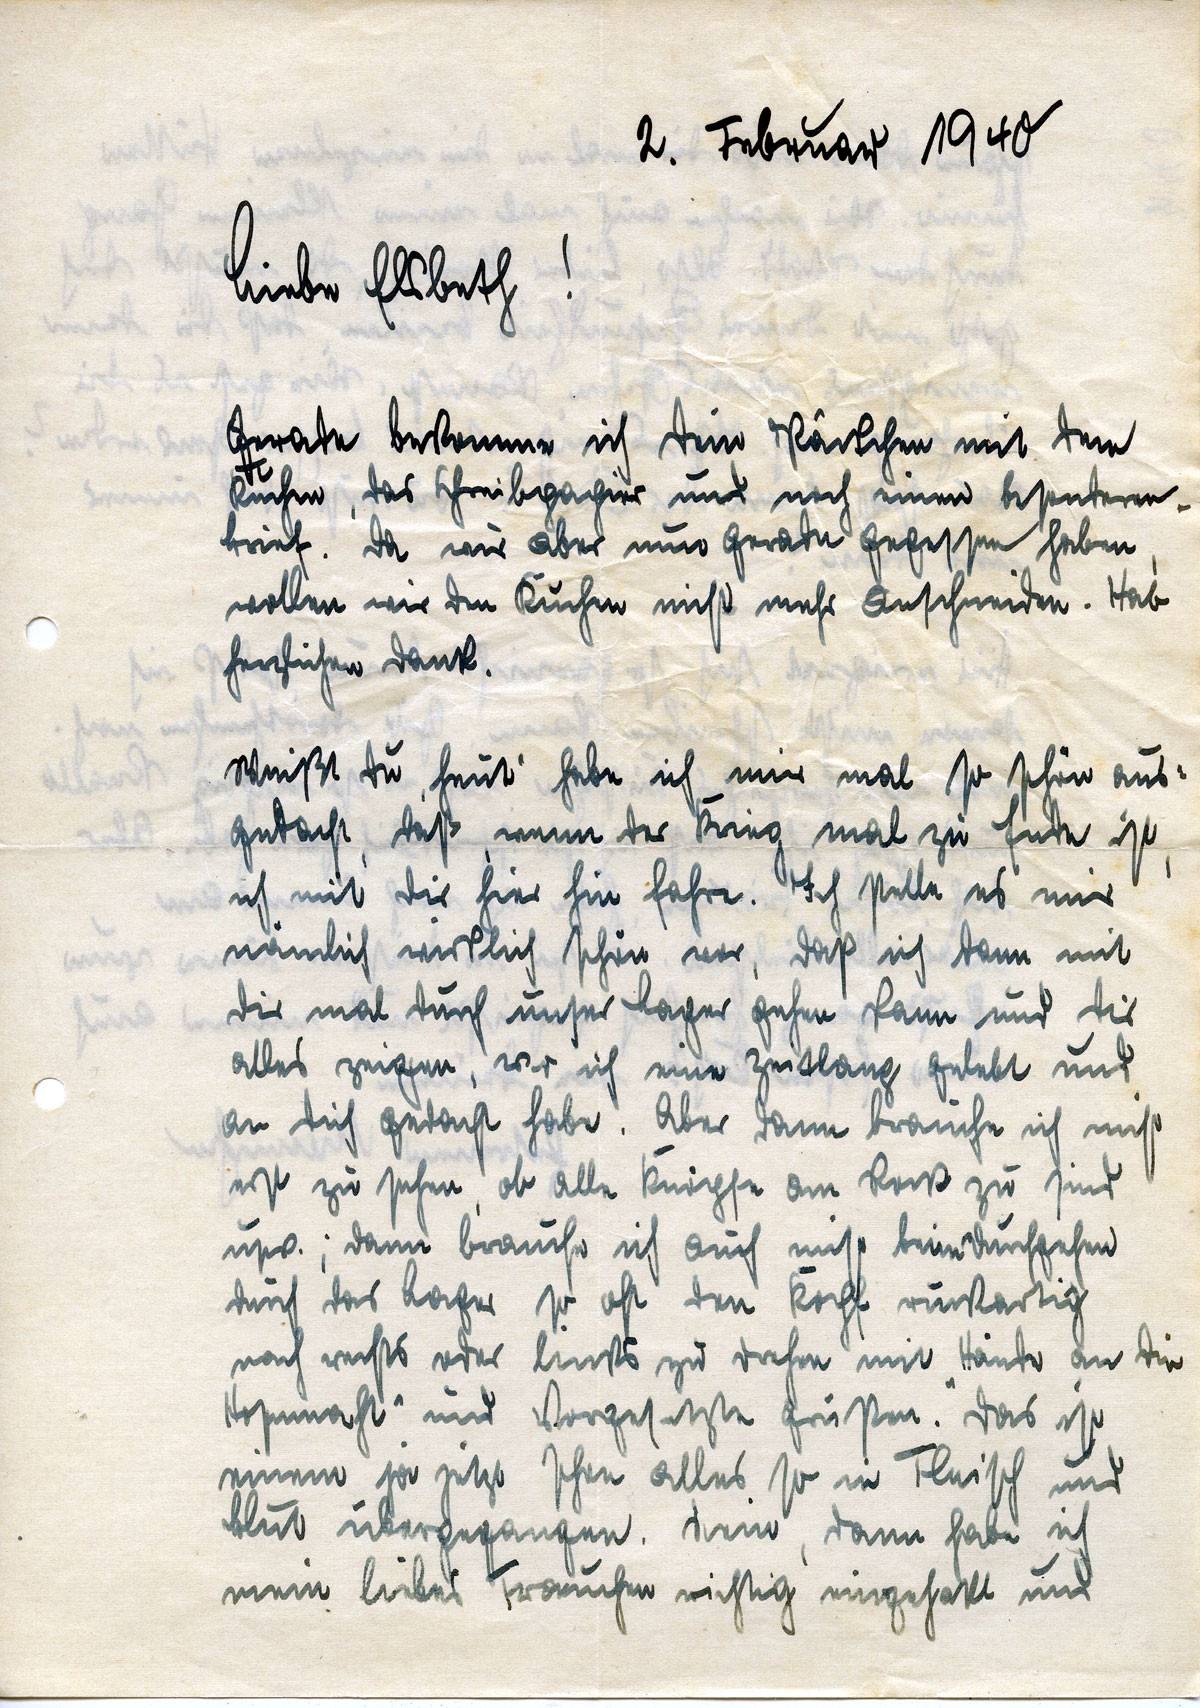 2. Februar 1940
Liebe Elsbeth!
Gerade bekomme ich Dein Päckchen mit dem
Kuchen, das Schreibpapier und noch einen besonderen-
brief. Da wir aber nun gerade gegessen haben,
wollen wir den Kuchen nicht mehr anschneiden. Hab
herzlichen Dank.
Weißt Du, heut' habe ich mir mal so schön aus-
gedacht, daß, wenn der Krieg mal zu Ende ist,
ich mit Dir hier hin fahre. Ich stelle es mir
nämlich wirklich schön vor, daß ich dann mit
Dir mal durch unser Lager gehen kann und Dir
alles zeigen, wo ich eine Zeitlang gelebt und
an Dich gedacht habe. Aber dann brauche ich nicht
erst zu sehen, ob alle Knöpfe am Rock zu sind
usw.; dann brauche ich auch nicht beim Durchgehen
durch das Lager so oft den Kopf ruckartig
nach rechts oder links zu drehen mit "Hände an die
Hosennaht" und Vorgesetzte grüßen. Das ist
einem ja jetzt schon alles so in Fleisch und
Blut übergegangen. Nein, dann habe ich
mein liebes Frauchen richtig eingehakt und